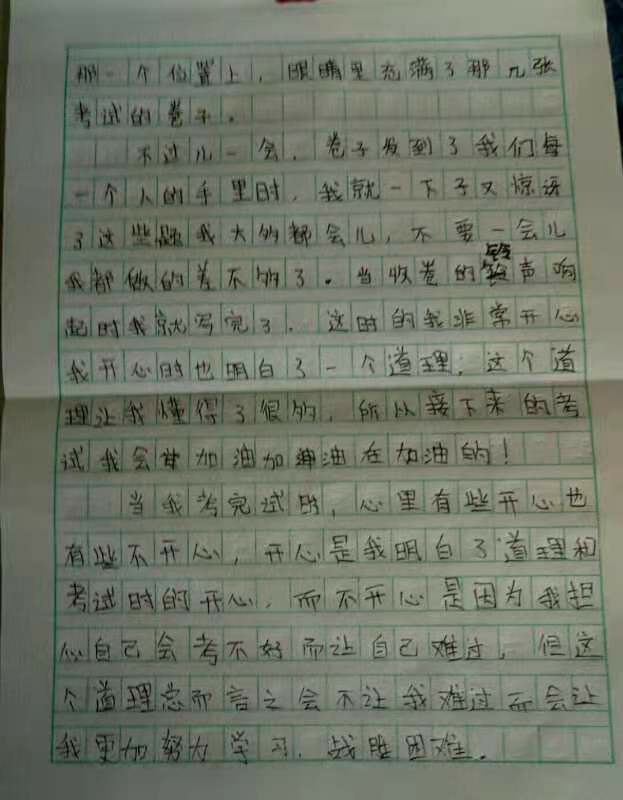 那一个位置上，眼睛里充满了那几张
考试的卷子。
不过儿一会，卷子发到了我们每
一个人的手里时，我就一下子又惊讶
了这些题我大多都会儿，不要一会儿
我都做的差不多了。当收卷的铃声响
起时我就写完了．这时的我非常开心
我开心时也明白了一个道理，这个道
理让我懂得了很多，所以接下来的考
试我会加油加油在加油的！
当我考完试时，心里有些开心也
有些不开心，开心是我明白了道理和
考试时的开心，而不开心是因为我担
心自己会考不好而让自己难过，但这
个道理总而言之会不让我难过而会让
我更加努力学习．战胜困难．